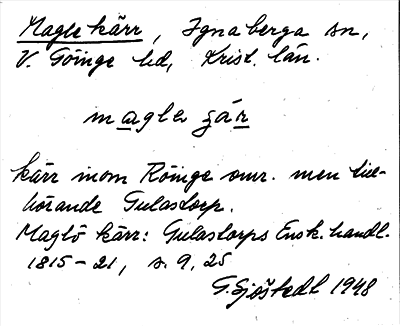 Magle kärr, Ignaberga sn,
V. Göinge hd, Krist. län.
magle zár
kärr inom Röinge omr. men till-
hörande Gulastorp.
Maglö kärr: Gulastorps Ensk. handl.
1815-21, s. 9, 25
G. Sjöstedt 1948